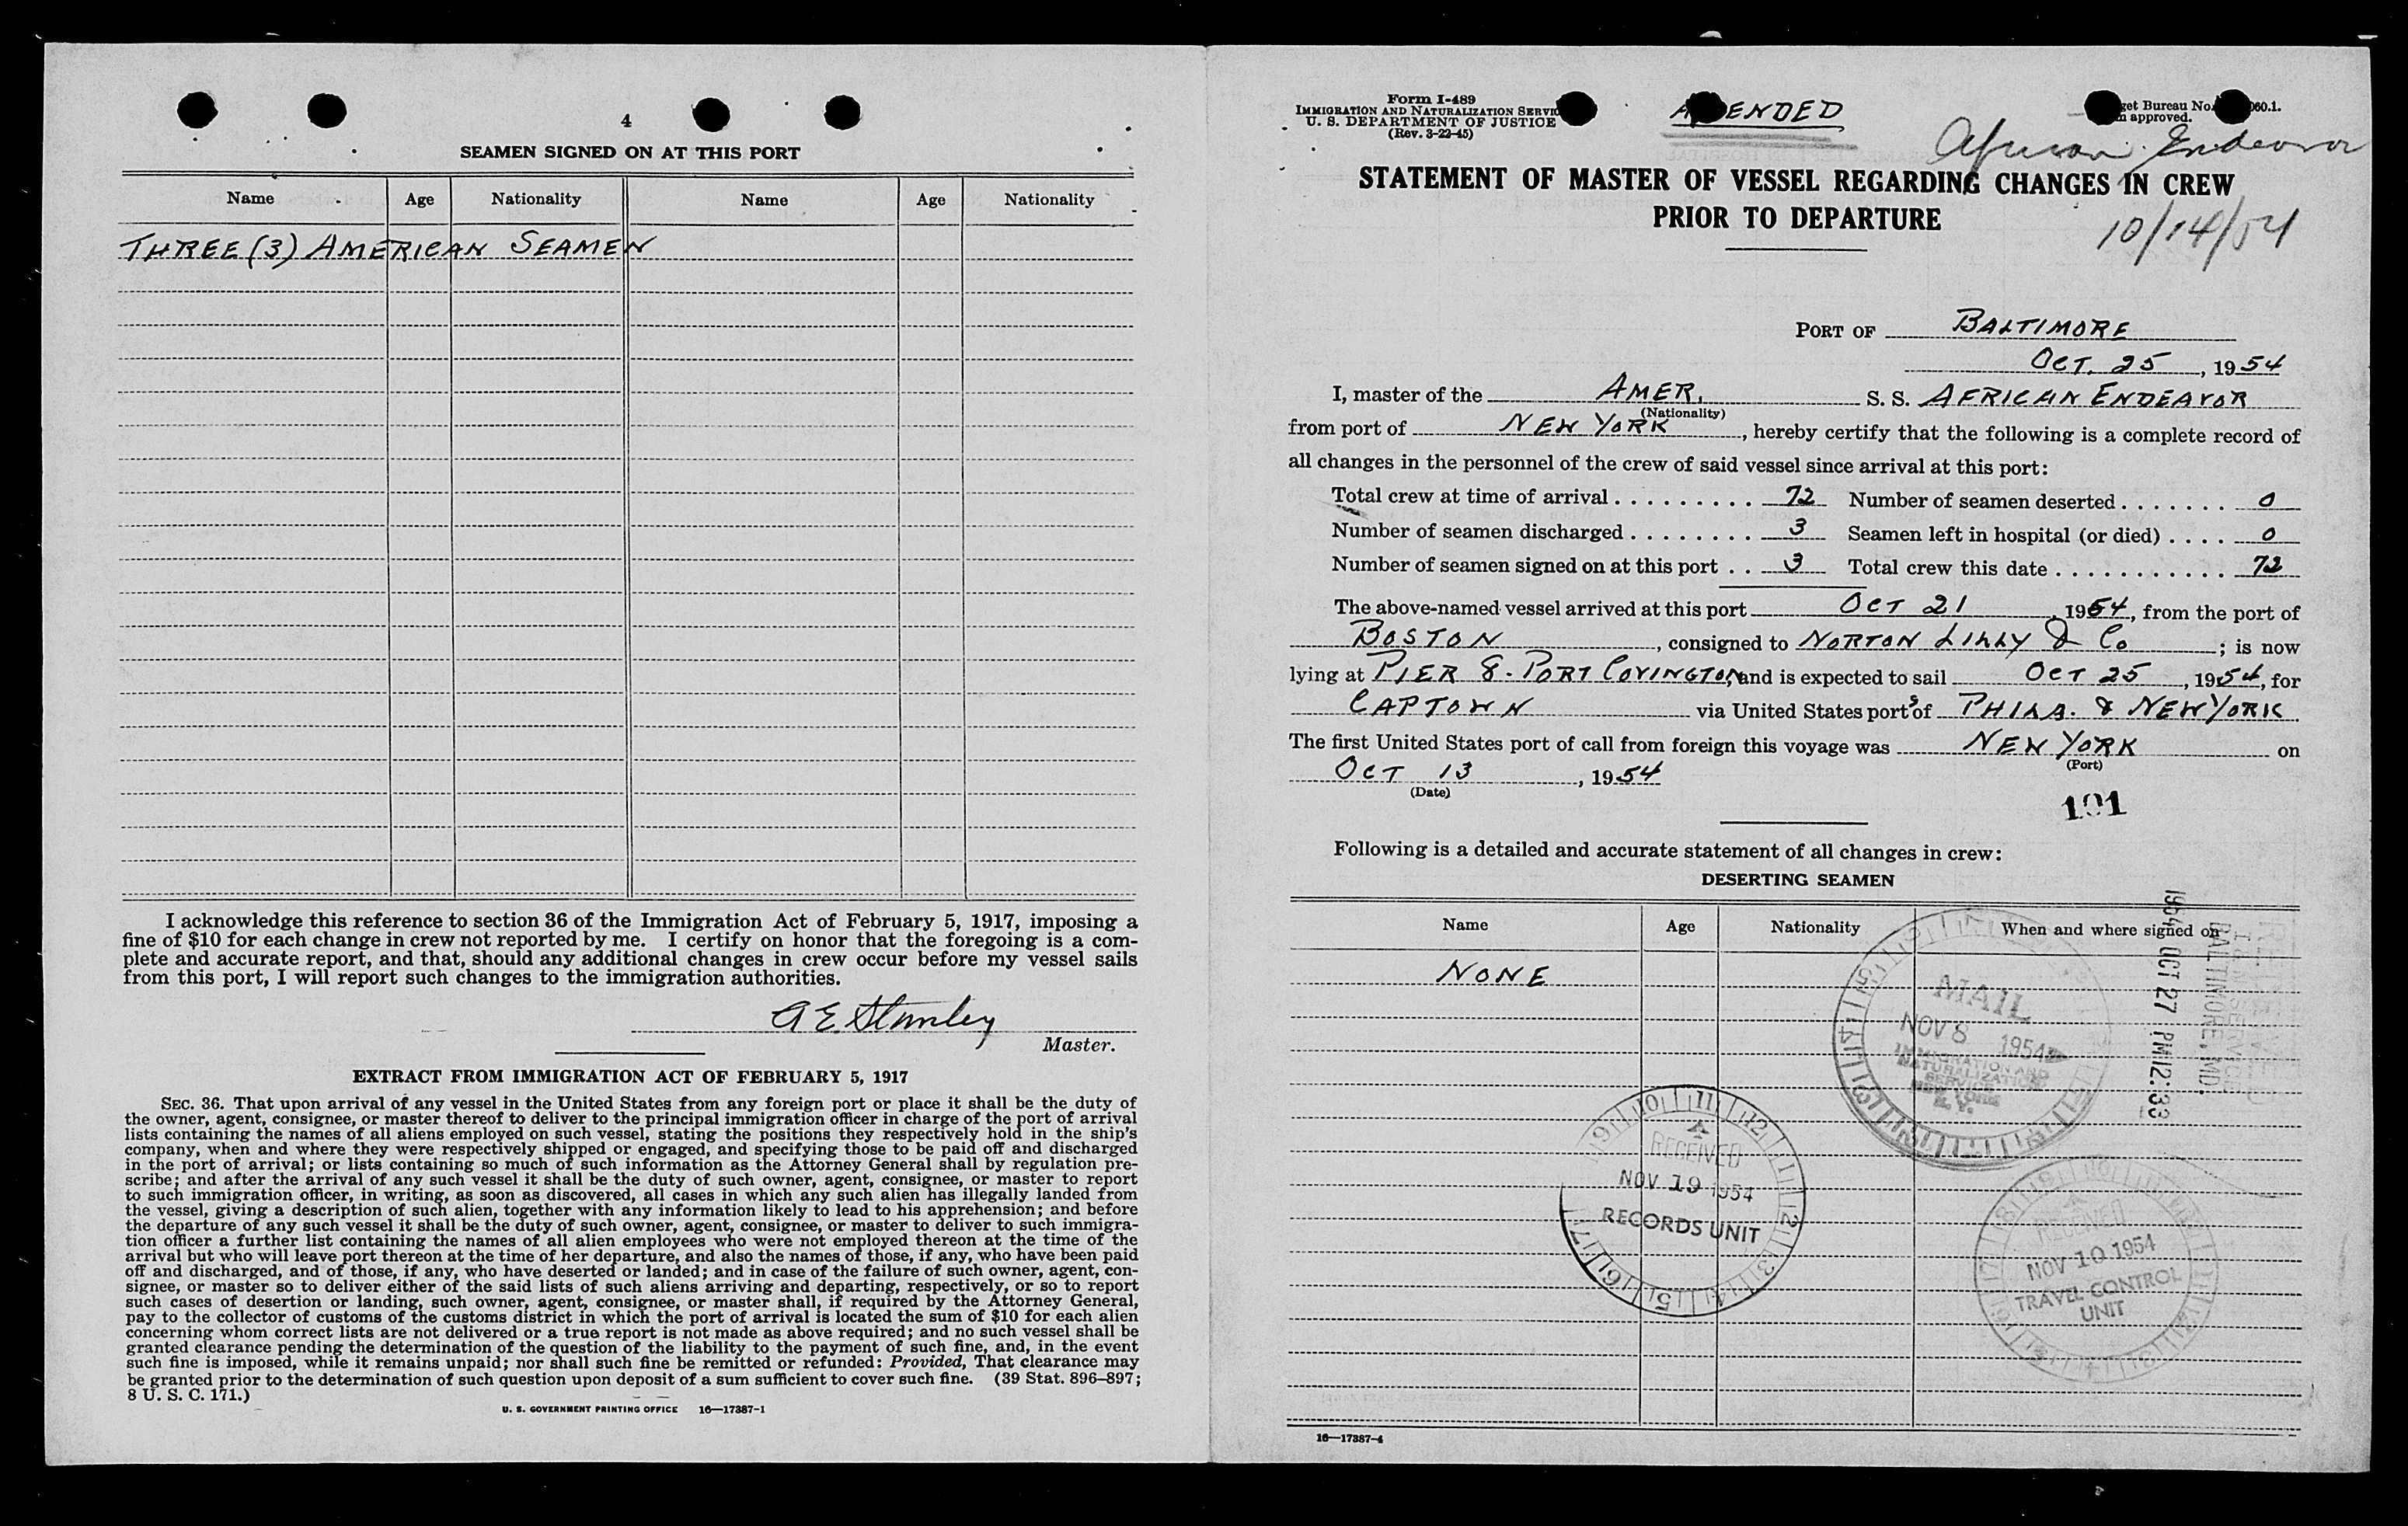 4
SEAMEN SIGNED ON AT THIS PORT
Name Age Nationality Name Age Nationality
THREE (3) AMERICAN SEAMEN
I acknowledge this reference to section 36 of the Immigration Act of February 5, 1917, imposing a
fine of $10 for each change in crew not reported by me. I certify on honor that the foregoing is a com-
plete and accurate report, and that, should any additional changes in crew occur before my vessel sails
from this port, I will report such changes to the immigration authorities.
A E Stanley
Master.
EXTRACT FROM IMMIGRATION ACT OF FEBRUARY 5, 1917
SEC. 36. That upon arrival of any vessel in the United States from any foreign port or place it shall be the duty of
the owner, agent, consignee, or master thereof to deliver to the principal immigration officer in charge of the port of arrival
lists containing the names of all aliens employed on such vessel, stating the positions they respectively hold in the ship's
company, when and where they were respectively shipped or engaged, and specifying those to be paid off and discharged
in the port of arrival; or lists containing so much of such information as the Attorney General shall by regulation pre-
scribe; and after the arrival of any such vessel it shall be the duty of such owner, agent, consignee, or master to report
to such immigration officer, in writing, as soon as discovered, all cases in which any such alien has illegally landed from
the vessel, giving a description of such alien, together with any information likely to lead to his apprehension; and before
the departure of any such vessel it shall be the duty of such owner, agent, consignee, or master to deliver to such immigra-
tion officer a further list containing the names of all alien employees who were not employed thereon at the time of the
arrival but who will leave port thereon at the time of her departure, and also the names of those, if any, who have been paid
off and discharged, and of those, if any, who have deserted or landed; and in case of the failure of such owner, agent, con-
signee, or master so to deliver either of the said lists of such aliens arriving and departing, respectively, or so to report
such cases of desertion or landing, such owner, agent, consignee, or master shall, if required by the Attorney General,
pay to the collector of customs of the customs district in which the port of arrival is located the sum of $10 for each alien
concerning whom correct lists are not delivered or a true report is not made as above required; and no such vessel shall be
granted clearance pending the determination of the question of the liability to the payment of such fine, and, in the event
such fine is imposed, while it remains unpaid; nor shall such fine be remitted or refunded: Provided, That clearance may
be granted prior to the determination of such question upon deposit of a sum sufficient to cover such fine. (39 Stat. 896–897;
8 U. S. C. 171.)
U. S. GOVERNMENT PRINTING OFFICE 16—17387-1
Form I-489
IMMIGRATION AND NATURALIZATION SERVIC
U. S. DEPARTMENT OF JUSTICE
(Rev. 3-22-45)
AMENDED
get Bureau No. 060.1.
approved.
African Endeavor
STATEMENT OF MASTER OF VESSEL REGARDING CHANGES IN CREW
PRIOR TO DEPARTURE
10/14/54
PORT OF BALTIMORE
OCT. 25, 1954
I, master of the AMER. S. S. AFRICAN ENDEAVOR
(Nationality)
from port of NEW YORK, hereby certify that the following is a complete record of
all changes in the personnel of the crew of said vessel since arrival at this port:
Total crew at time of arrival . . . . . . . . . 72 Number of seamen deserted . . . . . . . 0
Number of seamen discharged . . . . . . . . 3 Seamen left in hospital (or died) . . . . 0
Number of seamen signed on at this port . . 3 Total crew this date . . . . . . . . . . . 72
The above-named vessel arrived at this port OCT 21, 1954, from the port of
BOSTON, consigned to NORTON LILLY & Co; is now
lying at PIER 8. PORT COVINGTON, and is expected to sail OCT 25, 1954, for
CAPTOWN via United States ports of PHILA. & NEW YORK
The first United States port of call from foreign this voyage was NEW YORK on
(Port)
OCT 13, 1954
(Date)
191
Following is a detailed and accurate statement of all changes in crew:
DESERTING SEAMEN
Name Age Nationality When and where signed on
NONE
1954 OCT 27 PM 12:33
BALTIMORE, MD.
MAIL
NOV 8 1954
IMMIGRATION AND
NATURALIZATION
SERVICE
NEW YORK
N. Y.
RECEIVED
NOV 19 1954
RECORDS UNIT
RECEIVED
NOV 10 1954
TRAVEL CONTROL
UNIT
16—17387-4